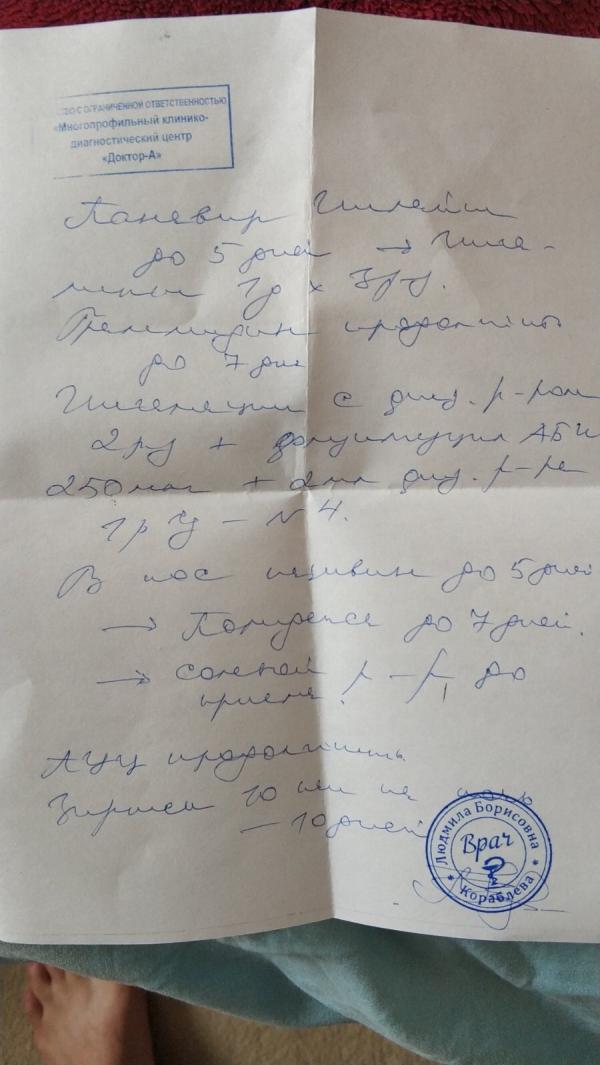 С ОГРАНИЧЕННОЙ ОТВЕТСТВЕННОСТЬЮ
«Многопрофильный клинико-
диагностический центр
«Доктор-А»
до 5 дней →
1р х
продолжить
до 7 дн
Ингаляции с физ. р-ром
2 р/д + флуимуцил АБИ
250 мг + 2 мл физ. р-ра
1р - N 4.
В нос називин до 5 дней
→ Полидекса до 7 дней.
→ солевой р-р, до
приема.
АЦЦ продолжить
10 на
- 10 дней
Людмила Борисовна
Врач
Кораблева